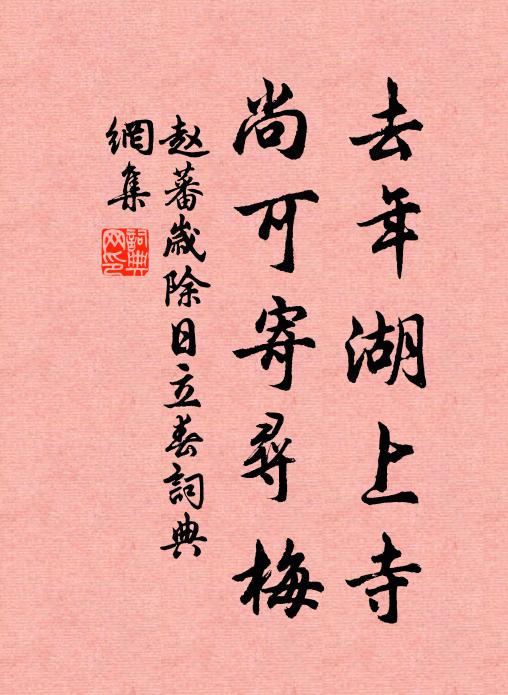 去年湖上寺
尚可寄尋梅
赵蕃嵗除日立春詞典
網集
詞典網印